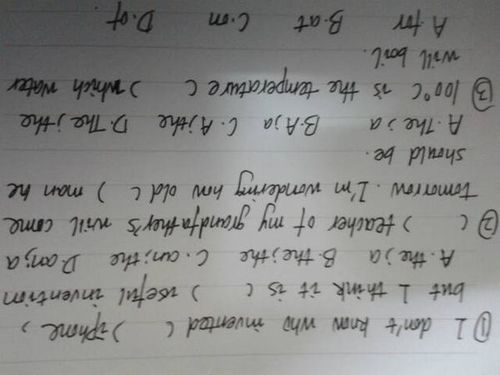 ① I don't know who invented (     ) iphone,
but I think it is (     ) useful invention
A. the; a   B. the; the   C. an; the   D. an; a
② (     ) teacher of my grandfather's will come
tomorrow. I'm wondering how old (     ) man he
should be.
A. The; a   B. A; a   C. A; the   D. The; the
③ 100°C is the temperature (     ) which water
will boil.
A. for   B. at   C. on   D. of.